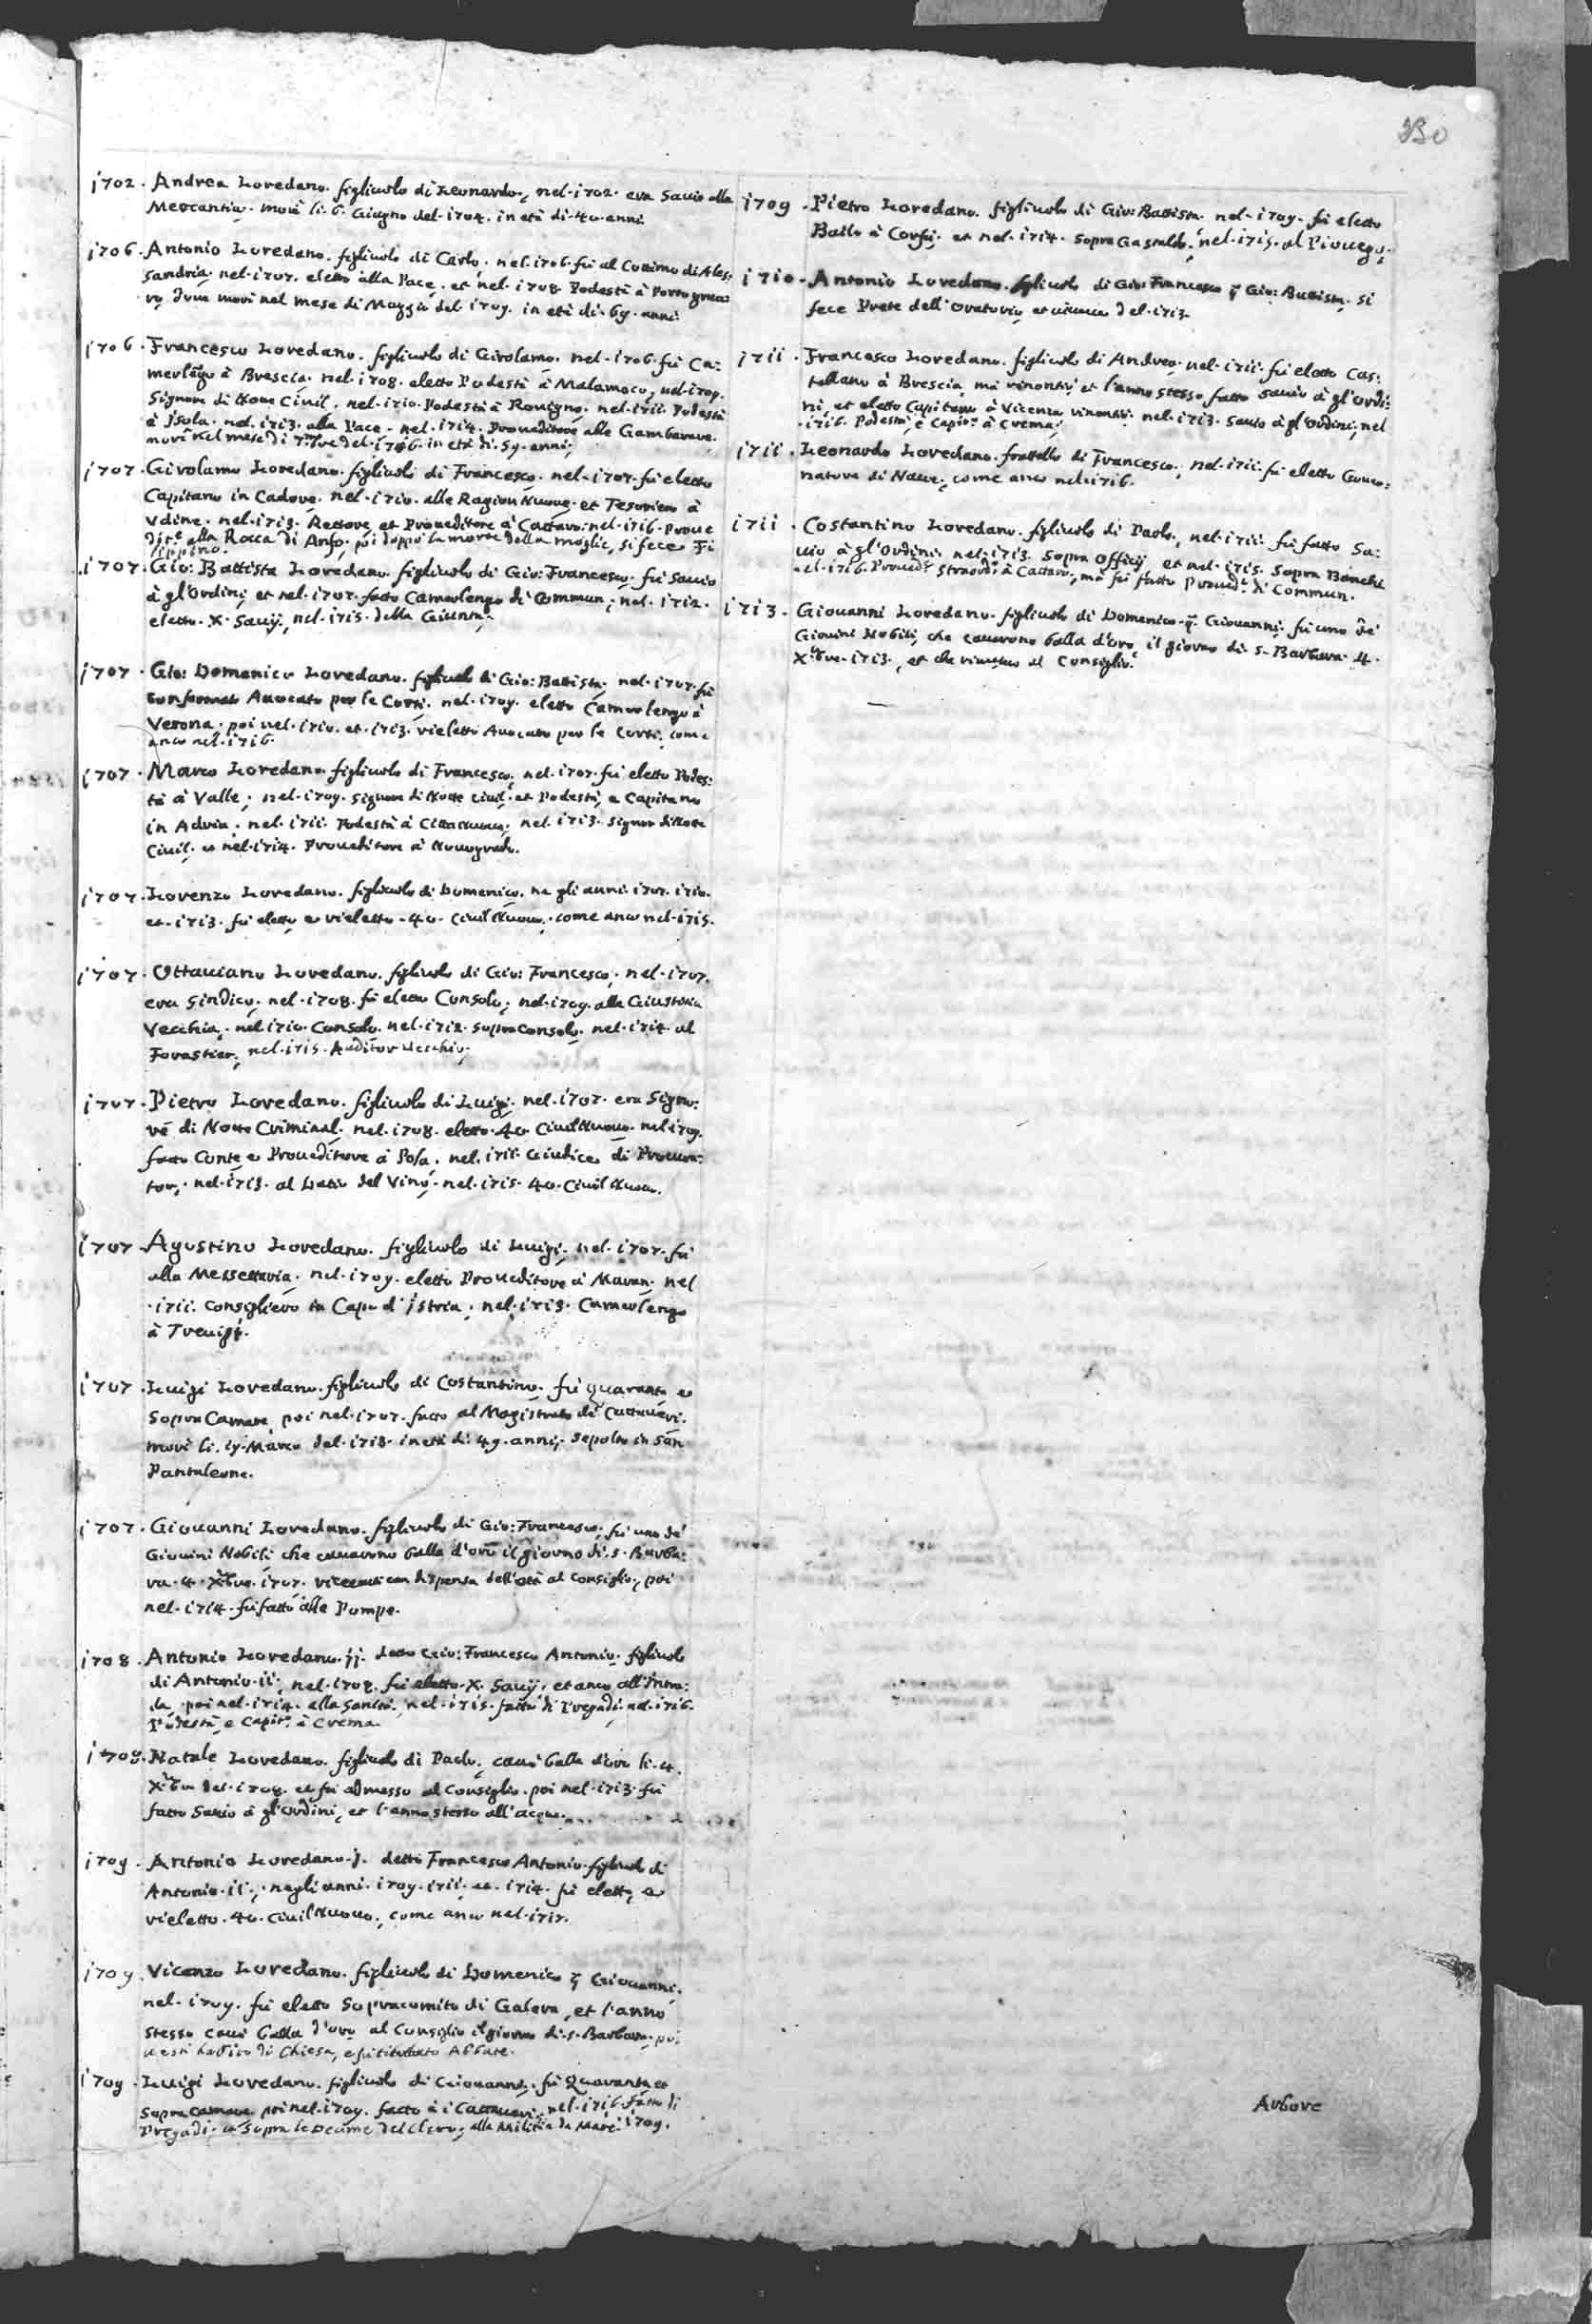 230
1702. Andrea Loredano. figliuolo di Leonardo, nel. 1702. era Savio alla
Mercantia. morì li. 6. Giugno del. 1704. in età di. 40. anni.
1706. Antonio Loredano. figliuolo di Carlo. nel. 1706. fù al Cottimo di Ales:
sandria. nel. 1707. eletto alla Pace. et nel. 1708. Podestà à Porto grua:
ro, dove morì nel mese di Maggio del. 1709. in età di. 69. anni.
1706. Francesco Loredano. figliuolo di Girolamo. nel. 1706. fù Ca:
merlengo à Brescia. nel. 1708. eletto Podestà à Malamoco, nel. 1709.
Signore di Notte Civil. nel. 1710. Podestà à Rovigno. nel. 1711. Podestà
à Isola. nel. 1713. alla Pace. nel. 1714. Proveditore alle Gambarare.
morì nel mese di del. 1716. in età di. 59. anni;
1707. Girolamo Loredano. figliuolo di Francesco. nel. 1707. fù eletto
Capitano in Cadore. nel. 1710. alle Ragion Nuove. et Tesoriero à
Udine. nel. 1713. Rettore, et Proveditore à Cattaro. nel. 1716. Prove
dit.e alla Rocca di Anfo. poi doppò la morte della moglie, si fece Fi
lippino.
1707. Gio: Battista Loredano. figliuolo di Gio: Francesco. fù Savio
à gl'Ordini, et nel. 1707. fatto Camerlengo di Commun; nel. 1712.
eletto. X. Savij, nel. 1715. della Giunta.
1707. Gio: Domenico Loredano. figliuolo di Gio: Battista. nel. 1707. fù
confermato Avocato per le Corti. nel. 1709. eletto Camerlengo à
Verona. poi nel. 1710. et. 1713. rieletto Avocato per le Corti, come
anco nel. 1716.
1707. Marco Loredano. figliuolo di Francesco, nel. 1707. fù eletto Podes:
tà à Valle; nel. 1709. Signore di Notte Civil. et Podestà, e Capitano
in Adria. nel. 1711. Podestà à Cittanuova. nel. 1713. Signor di Notte
Civil. e nel. 1714. Proveditore à Novogrado.
1707. Lorenzo Loredano. figliuolo di Domenico. ne gli anni. 1707. 1710.
et. 1713. fù eletto e rieletto. 40. Civil Nuovo. come anco nel. 1715.
1707. Ottaviano Loredano. figliuolo di Gio: Francesco. nel. 1707.
era Sindico. nel. 1708. fù eletto Consolo; nel. 1709. alla Giustitia
Vecchia. nel 1710. Consolo. nel. 1712. sopra Consolo. nel. 1714. al
Forastier, nel. 1715. Auditor Vecchio.
1707. Pietro Loredano. figliuolo di Luigi. nel. 1707. era Signo:
re di Notte Criminal. nel. 1708. eletto. 40. Civil Nuovo. nel 1709.
fatto Conte e Proveditore à Pola. nel. 1711. Giudice di Procura:
tor. nel. 1713. al Datio del Vino. nel. 1715. 40. Civil Nuovo.
1707. Agustino Loredano. figliuolo di Luigi. nel. 1707. fù
alla Messettaria. nel. 1709. eletto Proveditore à Maran. nel
. 1711. Consigliero in Capo d'Istria. nel. 1713. Camerlengo
à Trevigi.
1707. Luigi Loredano. figliuolo di Costantino. fù Quaranta e
Sopra Camere, poi nel. 1707. fatto al Magistrato de Cattaveri.
morì li. 19. Marzo del. 1713. in età di. 49. anni, sepolto in San
Pantaleone.
1707. Giovanni Loredano. figliuolo di Gio: Francesco; fù uno de'
Giovini Nobili che cavarono balla d'oro il giorno di. S. Barba:
ra. 4. Xbre. 1707. con dispensa dell'età al Consiglio, poi
nel. 1714. fù fatto alle Pompe.
1708. Antonio Loredano. jj. detto Gio: Francesco Antonio. figliuolo
di Antonio. ii. nel. 1708. fù eletto. X. Savij. et anco all'Intra:
da. poi nel. 1714. alla Sanità. nel. 1715. fatto di Pregadi. nel. 1716.
Podestà, e Capit.o à Crema.
1708. Natale Loredano. figliuolo di Paolo. cavò balla d'oro li. 4.
Xbre del. 1708. et fù admesso al Consiglio. poi nel. 1713. fù
fatto Savio à gl'Ordini, et l'anno stesso all'acque.
1709. Antonio Loredano. j. detto Francesco Antonio. figliuolo di
Antonio. ii. negli anni. 1709. 1711. et. 1714. fù eletto, e
rieletto. 40. Civil Nuovo. come anco nel. 1717.
1709. Vicenzo Loredano. figliuolo di Domenico q. Giovanni.
nel. 1709. fù eletto Sopracomito di Galera, et l'anno
stesso cavò balla d'oro al Consiglio il giorno di. S. Barbara. poi
vestì habito di Chiesa, e fù titolato Abbate.
1709. Luigi Loredano. figliuolo di Giovanni. fù Quaranta et
Sopra Camere poi nel. 1709. fatto à i Cattaveri. nel. 1716. fatto di
Pregadi. e Sopra le Decime del Clero; alla Militia da Mare. 1709.
1709. Pietro Loredano. figliuolo di Gio: Battista. nel. 1709. fù eletto
Bailo à Corfù. et nel. 1714. Sopra Gastaldo. nel. 1715. al Piovego.
1710. Antonio Loredano. figliuolo di Gio: Francesco q. Gio: Battista. si
fece Prete dell'Oratorio, et viveva del. 1713.
1711. Francesco Loredano. figliuolo di Andrea. nel. 1711. fù eletto Cas:
tellano à Brescia, mà rinontiò, et l'anno stesso fatto Savio à gl'Ordi:
ni, et eletto Capitano à Vicenza rinontiò. nel. 1713. Savio à gl'Ordini, nel
. 1716. Podestà, e Capit.o à Crema.
1711. Leonardo Loredano. frattello di Francesco, nel. 1711. fù eletto Gover:
natore di Nave, come anco nel. 1716.
1711. Costantino Loredano. figliuolo di Paolo, nel. 1711. fù fatto Sa:
vio à gl'Ordini. nel. 1713. Sopra Officij, et nel. 1715. Sopra Banchi
nel. 1716. Proved.r Straord.o à Cattaro, mà fù fatto Proved.r di Commun.
1713. Giovanni Loredano. figliuolo di Domenico. q. Giovanni. fù uno de'
Giovini Nobili, che cavarono balla d'oro, il giorno di. S. Barbara. 4.
Xbre. 1713. et che al Consiglio.
Arbore